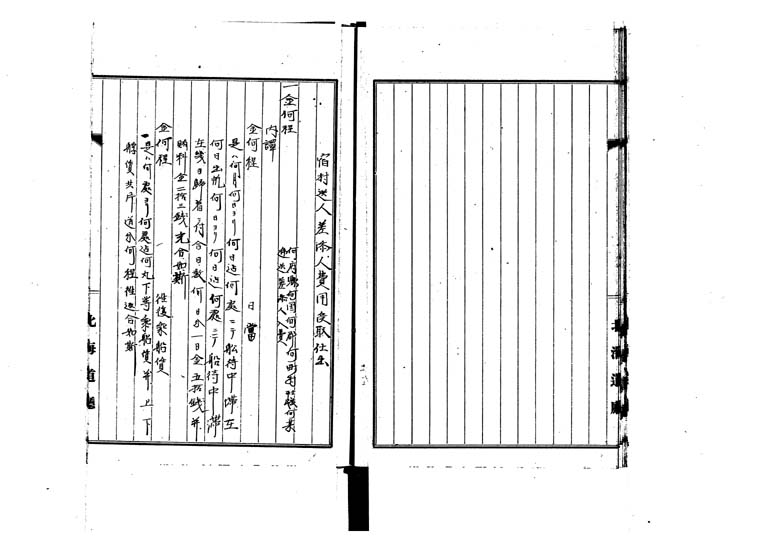 宿村送人差添人費用受取仕出
一金何程
何府縣何国何郡何町村番何某
逓送差添人入費
内譯
金何程 日當
是ハ何月何日ヨリ何日迄何處ニテ船待中滞在
何日出帆何日ヨリ何日迄何處ニテ船待中滞
在幾日歸着ニ付合日数何日分一日金五拾銭并
賄料金二拾三銭完合如斯
金何程 往復乗船賃
是ハ何處ヨリ何處迄何丸下等乗船賃并上下
艀賃共片道分何程往返合如斯
北海道廳
北海道廳